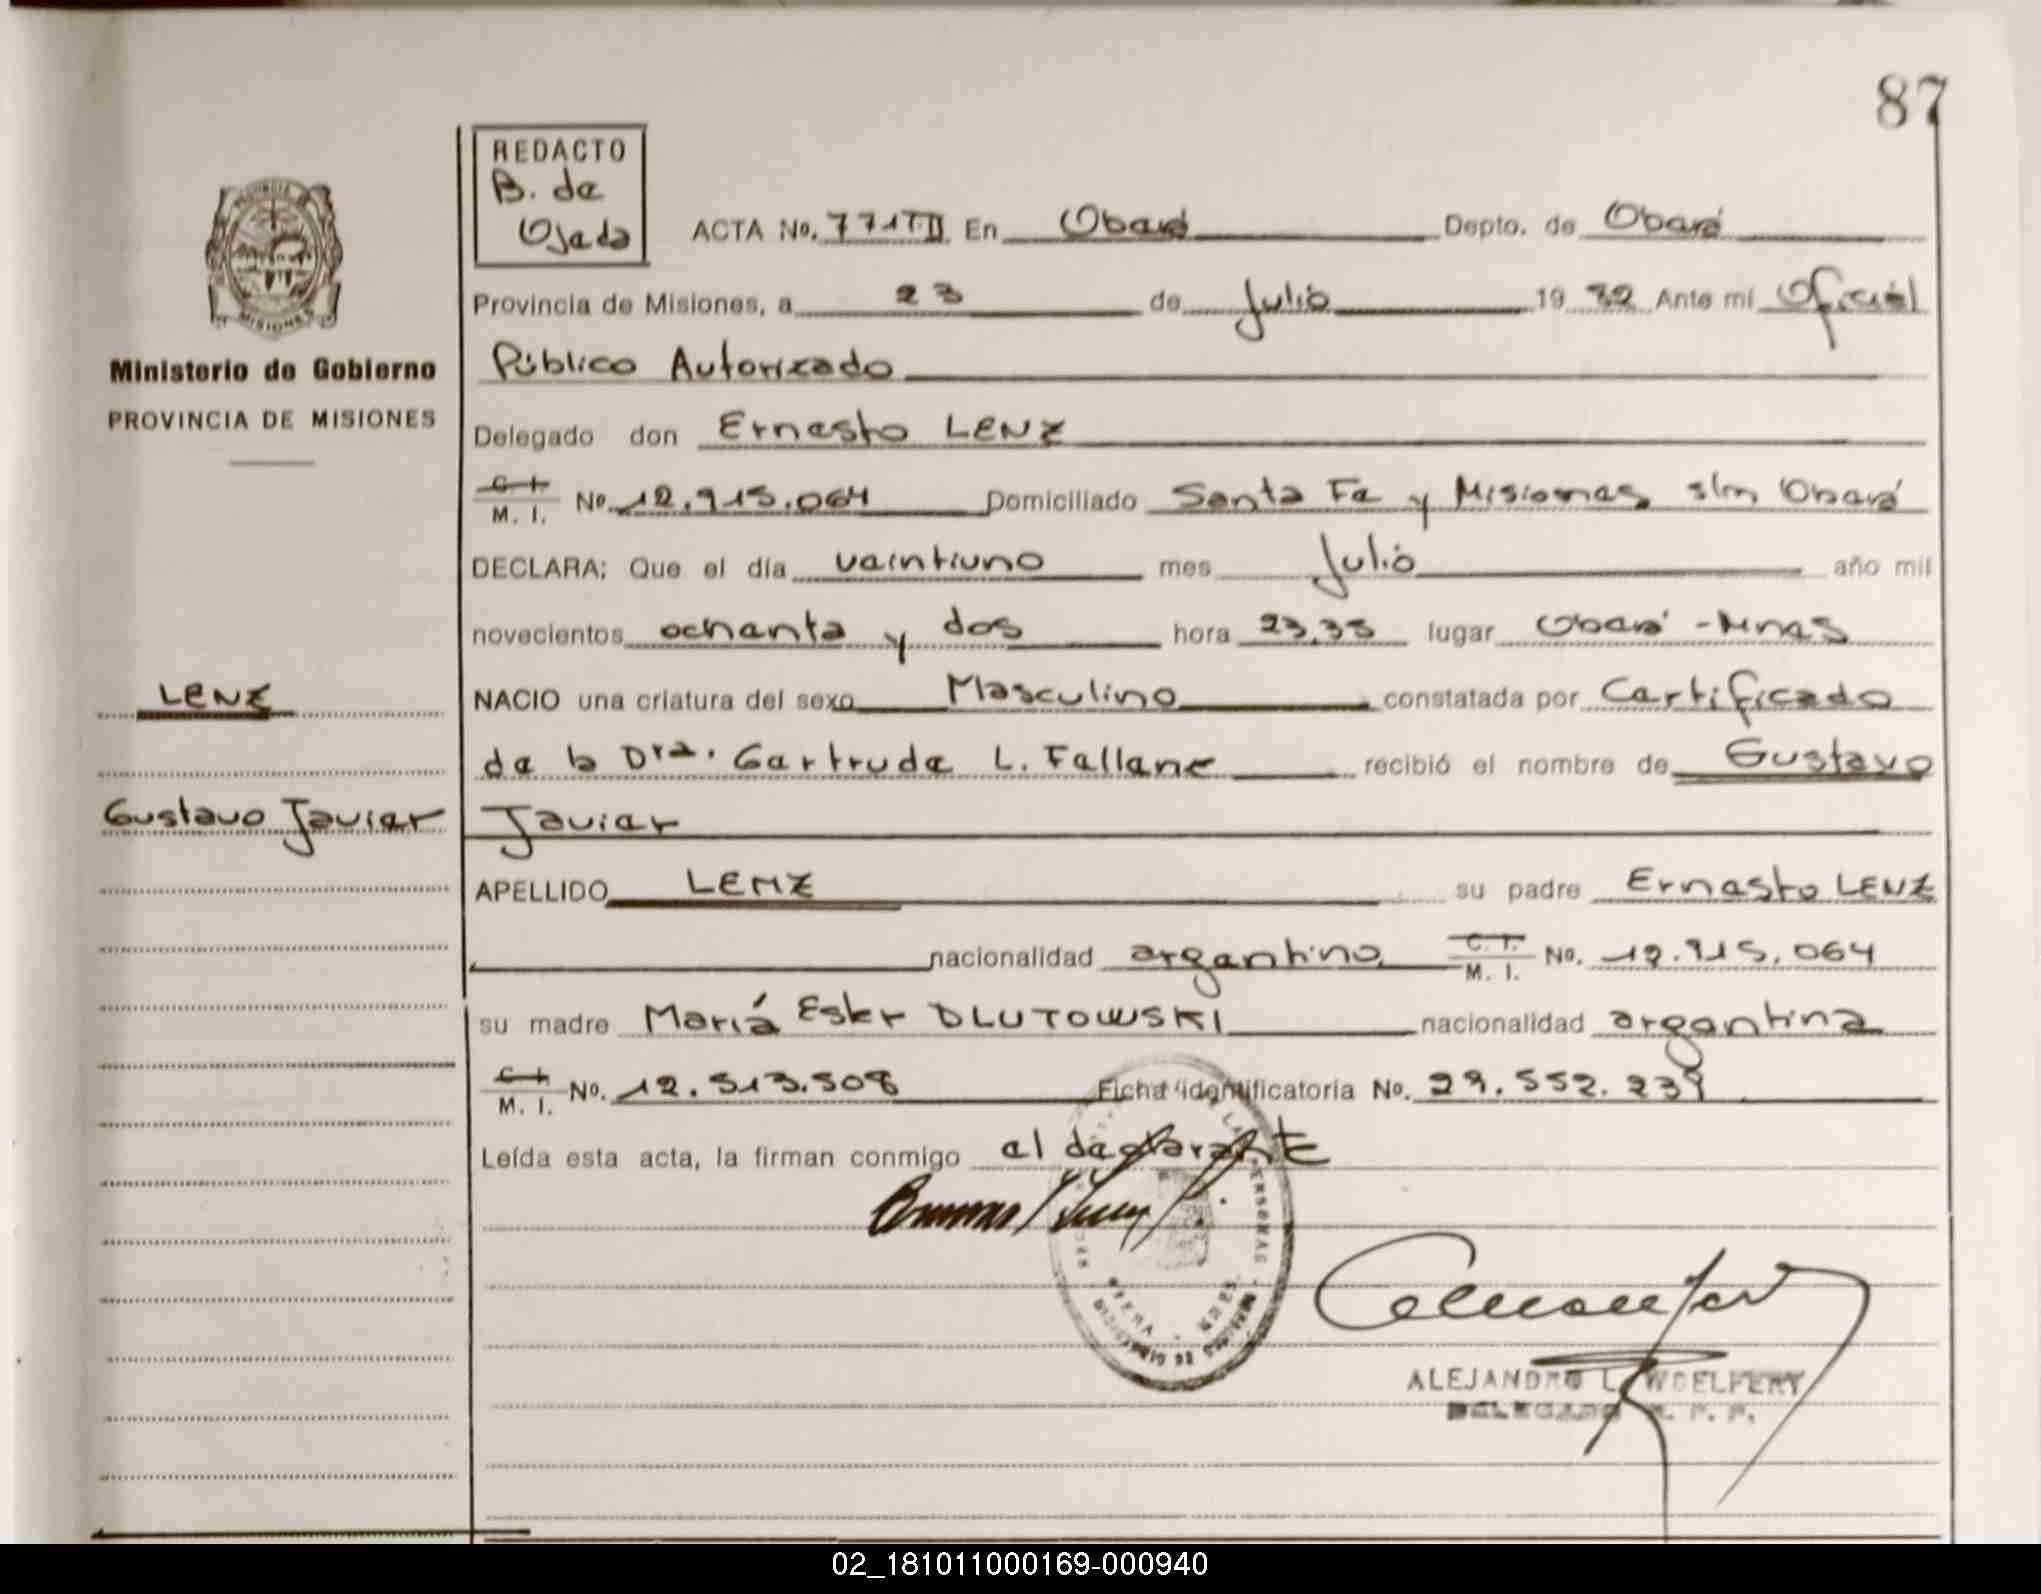 87
REDACTO
B. de
Ojeda
ACTA No. 771TII En Oberá Depto. de Oberá
Provincia de Misiones, a 23 de Julio 19 82 Ante mí Oficial
Público Autorizado
Ministerio de Gobierno
PROVINCIA DE MISIONES
Delegado don Ernesto LENZ
C. I. M. I. No. 12.915.064 Domiciliado Santa Fe y Misiones s/n Oberá
DECLARA; Que el día veintiuno mes Julio año mil
novecientos ochenta y dos hora 23,35 lugar Oberá - Mnes
LENZ
NACIO una criatura del sexo Masculino constatada por Certificado
de la Dra. Gertrude L. Fallane recibió el nombre de Gustavo
Gustavo Javier
Javier
APELLIDO LENZ su padre Ernesto LENZ
nacionalidad argentino C. I. M. I. No. 12.915.064
su madre María Ester DLUTOWSKI nacionalidad argentina
C. I. M. I. No. 12.513.508 Ficha identificatoria No. 29.552.239
Leída esta acta, la firman conmigo el declarante
ALEJANDRO L. WOELFERT
DELEGADO R. P. P.
02_181011000169-000940